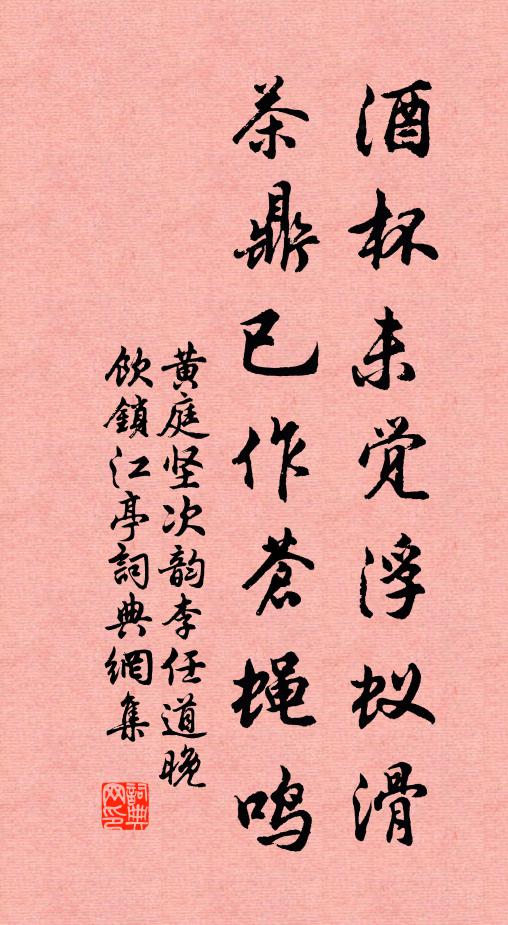 酒杯未觉浮蚁滑
茶鼎已作苍蝇鸣
黄庭坚次韵李任道晚
饮鎖江亭詞典網集
詞典
网印